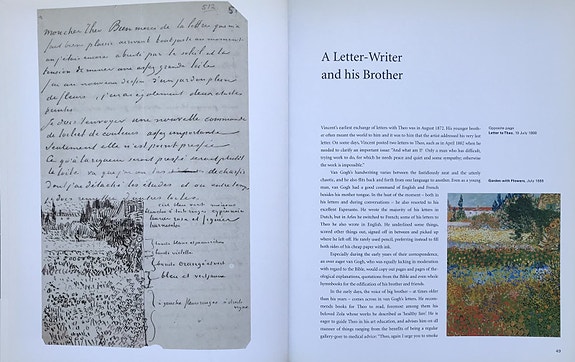 512
Mon cher Theo Bien merci de ta lettre qui m'a
fait bien plaisir arrivant tout juste au moment
où j'étais encore abruti par le soleil et la
tension de mener une assez grande toile
j'ai un nouveau dessin d'un jardin plein
de fleurs, j'en ai également deux études
peintes
Je dois t'envoyer une nouvelle commande
de toile et de couleurs assez importante
Seulement elle n'est point pressée
Ce qu'à la rigueur serait pressé serait plutôt
la toile vu que j'ai un tas de chassis
dont j'ai détaché les études et où entre temps
des toiles.
blanche
bande violette
bande orangé et vert
bleu et
A Letter-Writer
and his Brother
Vincent's earliest exchange of letters with Theo was in August 1872. His younger broth-
er often meant the world to him and it was to him that the artist addressed his very last
letter. On some days, Vincent posted two letters to Theo, such as in April 1882 when he
needed to clarify an important issue: "And what am I? Only a man who has difficult,
trying work to do, for which he needs peace and quiet and some sympathy; otherwise
the work is impossible."
Van Gogh's handwriting varies between the fastidiously neat and the utterly
chaotic, and he also flits back and forth from one language to another. Even as a young
man, van Gogh had a good command of English and French
besides his mother tongue. In the heat of the moment – both in
his letters and during conversations – he also resorted to his
excellent Esperanto. He wrote the majority of his letters in
Dutch, but in Arles he switched to French; some of his letters to
Theo he also wrote in English. He underlined some things,
scored other things out, signed off in between and picked up
where he left off. He rarely used pencil, preferring instead to fill
both sides of his cheap paper with ink.
Especially during the early years of their correspondence,
an over eager van Gogh, who was equally lacking in moderation
with regard to the Bible, would copy out pages and pages of the-
ological explanations, quotations from the Bible and even whole
hymnbooks for the edification of his brother and friends.
In the early days, the voice of big brother – at times older
than his years – comes across in van Gogh's letters. He recom-
mends books for Theo to read, foremost among them his
beloved Zola whose works he described as 'healthy fare'. He is
eager to guide Theo in his art education, and advises him on all
manner of things ranging from the benefits of being a regular
gallery-goer to medical advice: "Theo, again I urge you to smoke
Opposite page
Letter to Theo, 19 July 1888
Garden with Flowers, July 1888
49